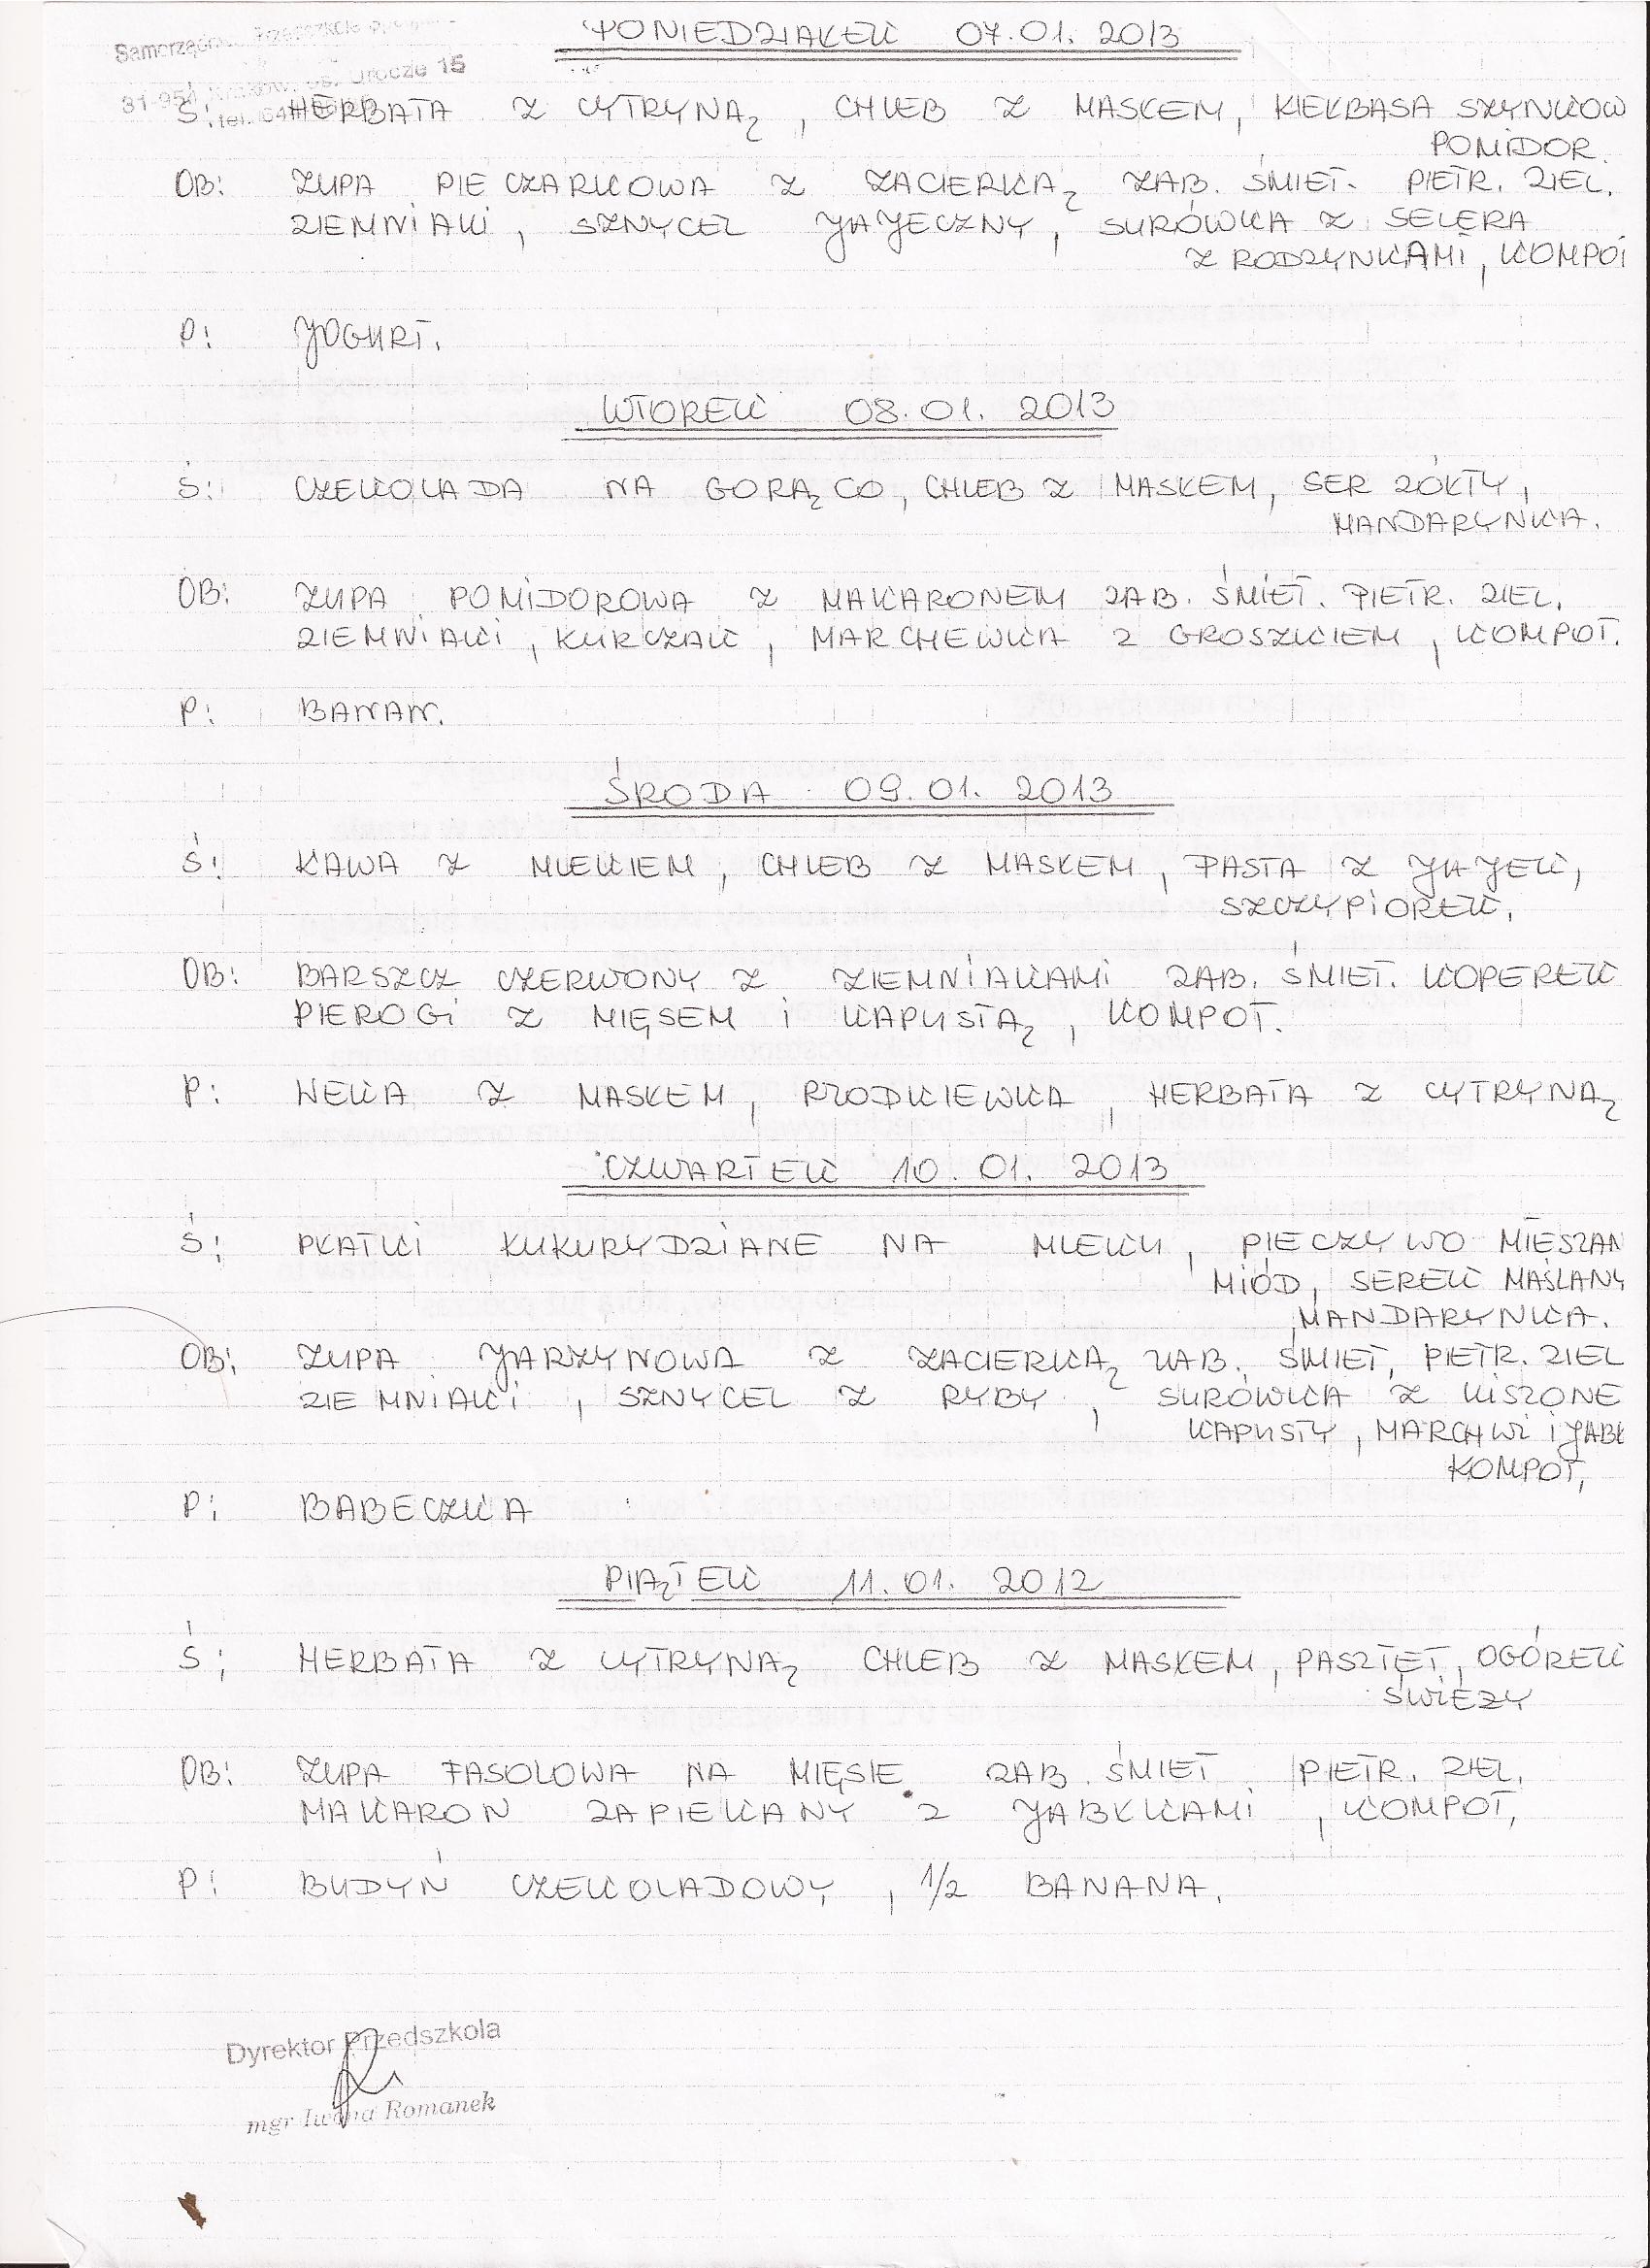 PONIEDZIAŁEK 07.01.2013
31-954 Urocze 15
tel.
Ś: HERBATA Z CYTRYNĄ, CHLEB Z MASŁEM, KIEŁBASA SZYNKOW
POMIDOR.
OB: ZUPA PIECZARKOWA Z ZACIERKĄ ZAB. ŚMIET. PIETR. ZIEL.
ZIEMNIAKI, SZNYCEL JAJECZNY, SURÓWKA Z SELERA
Z RODZYNKAMI, KOMPOT
P: JOGURT.
WTOREK 08.01.2013
Ś: CZEKOLADA NA GORĄCO, CHLEB Z MASŁEM, SER ŻÓŁTY,
MANDARYNKA.
OB: ZUPA POMIDOROWA Z MAKARONEM ZAB. ŚMIET. PIETR. ZIEL.
ZIEMNIAKI, KURCZAK, MARCHEWKA Z GROSZKIEM, KOMPOT.
P: BANAN.
ŚRODA 09.01.2013
Ś: KAWA Z MLEKIEM, CHLEB Z MASŁEM, PASTA Z JAJEK,
SZCZYPIOREK.
OB: BARSZCZ CZERWONY Z ZIEMNIAKAMI ZAB. ŚMIET. KOPEREK
PIEROGI Z MIĘSEM I KAPUSTĄ, KOMPOT.
P: WEKA Z MASŁEM, RZODKIEWKA, HERBATA Z CYTRYNĄ
CZWARTEK 10.01.2013
Ś: PŁATKI KUKURYDZIANE NA MLEKU, PIECZYWO MIESZAN
MIÓD, SEREK MAŚLANY
MANDARYNKA.
OB: ZUPA JARZYNOWA Z ZACIERKĄ ZAB. ŚMIET, PIETR. ZIEL
ZIEMNIAKI, SZNYCEL Z RYBY, SURÓWKA Z KISZONE
KAPUSTY, MARCHWI I JABŁ
KOMPOT,
P: BABECZKA
PIĄTEK 11.01.2012
Ś: HERBATA Z CYTRYNĄ CHLEB Z MASŁEM, PASZTET, OGÓREK
ŚWIEŻY
OB: ZUPA FASOLOWA NA MIĘSIE ZAB. ŚMIET PIETR. ZIEL.
MAKARON ZAPIEKANY Z JABŁKAMI, KOMPOT,
P: BUDYŃ CZEKOLADOWY, 1/2 BANANA.
Dyrektor Przedszkola
mgr Iwona Romanek